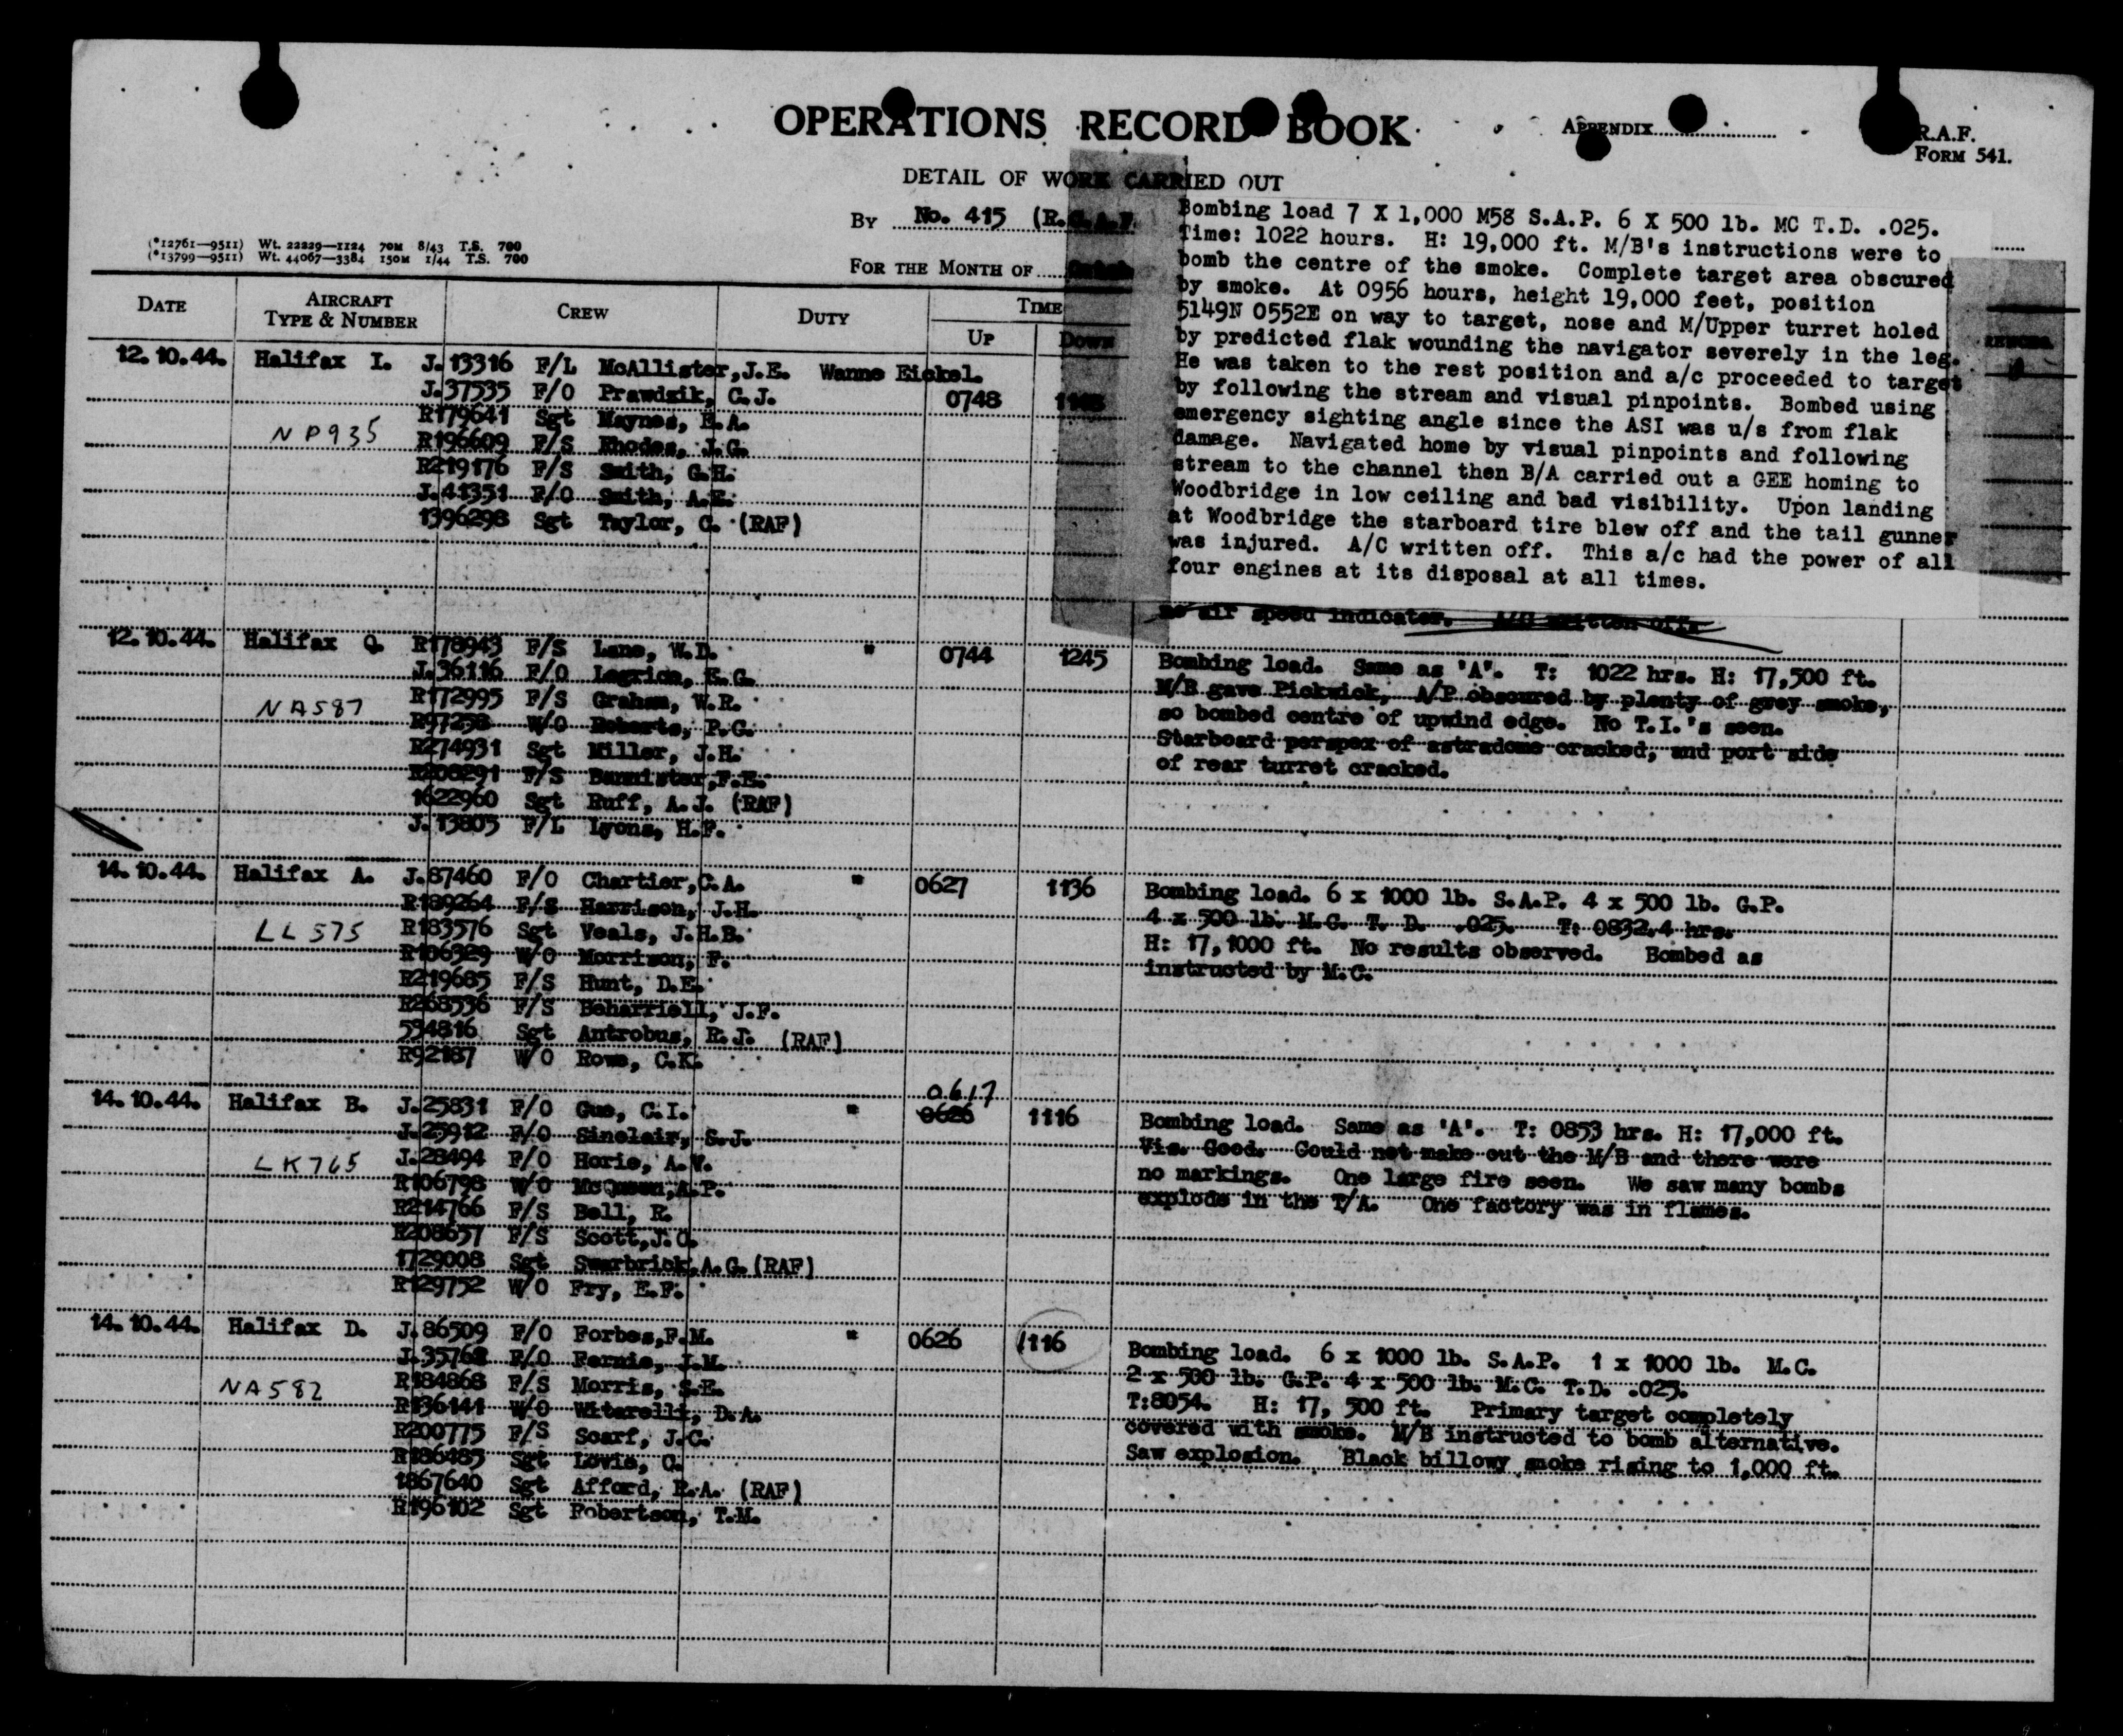 OPERATIONS RECORD BOOK
APPENDIX
R.A.F.
FORM 541.
DETAIL OF WORK CARRIED OUT
BY No. 415 (R.C.A.F.
FOR THE MONTH OF
(*12761—9511) Wt. 22229—1124 70M 8/43 T.S. 700
(*13799—9511) Wt. 44067—3384 150M 1/44 T.S. 700
DATE AIRCRAFT TYPE & NUMBER CREW DUTY TIME UP DOWN
Bombing load 7 X 1,000 M58 S.A.P. 6 X 500 lb. MC T.D. .025.
Time: 1022 hours. H: 19,000 ft. M/B's instructions were to
bomb the centre of the smoke. Complete target area obscured
by smoke. At 0956 hours, height 19,000 feet, position
5149N 0552E on way to target, nose and M/Upper turret holed
by predicted flak wounding the navigator severely in the leg.
He was taken to the rest position and a/c proceeded to target
by following the stream and visual pinpoints. Bombed using
emergency sighting angle since the ASI was u/s from flak
damage. Navigated home by visual pinpoints and following
stream to the channel then B/A carried out a GEE homing to
Woodbridge in low ceiling and bad visibility. Upon landing
at Woodbridge the starboard tire blew off and the tail gunner
was injured. A/C written off. This a/c had the power of all
four engines at its disposal at all times.
no air speed indicator. A/C written off.
12.10.44. Halifax I. J.13316 F/L McAllister,J.E. Wanne Eickel.
J.37535 F/O Prawdzik, C.J. 0748
R179641 Sgt Maynes, E.A.
NP935 R196609 F/S Rhodes, J.G.
R219176 F/S Smith, G.H.
J.41351 F/O Smith, A.E.
1396298 Sgt Taylor, C. (RAF)
12.10.44. Halifax Q. R178943 F/S Lane, W.D. " 0744 1245 Bombing load. Same as 'A'. T: 1022 hrs. H: 17,500 ft.
J.36116 F/O Legrice, E.G. M/B gave Pickwick, A/P obscured by plenty of grey smoke,
NA587 R172995 F/S Graham, W.R. so bombed centre of upwind edge. No T.I.'s seen.
R97258 W/O Roberts, P.G. Starboard perspex of astradome cracked, and port side
R274931 Sgt Miller, J.H. of rear turret cracked.
R208291 F/S Bannister,F.E.
1622960 Sgt Ruff, A.J. (RAF)
J.13805 F/L Lyons, H.F.
14.10.44. Halifax A. J.87460 F/O Chartier,C.A. " 0627 1136 Bombing load. 6 x 1000 lb. S.A.P. 4 x 500 lb. G.P.
R189264 F/S Harrison, J.H. 4 x 500 lb. M.C. T. D. .025. T: 0832.4 hrs.
LL575 R183576 Sgt Veals, J.H.B. H: 17,1000 ft. No results observed. Bombed as
R186329 W/O Morrison, F. instructed by M.C.
R219685 F/S Hunt, D.E.
R268536 F/S Beharriell, J.F.
594816 Sgt Antrobus, R.J. (RAF)
R92187 W/O Rowe, C.K.
0617
14.10.44. Halifax B. J.25831 F/O Gue, C.I. " 0626 1116 Bombing load. Same as 'A'. T: 0853 hrs. H: 17,000 ft.
J.25912 F/O Sinclair, S.J. Vis. Good. Could not make out the M/B and there were
LK765 J.28494 F/O Horie, A.V. no markings. One large fire seen. We saw many bombs
R106798 W/O McQueen,A.P. explode in the T/A. One factory was in flames.
R214766 F/S Bell, R.
R208657 F/S Scott,J.C.
1729008 Sgt Swarbrick,A.G.(RAF)
R129752 W/O Fry, E.F.
14.10.44. Halifax D. J.86509 F/O Forbes,F.M. " 0626 1116 Bombing load. 6 x 1000 lb. S.A.P. 1 x 1000 lb. M.C.
J.35768 F/O Fernie, J.M. 2 x 500 lb. G.P. 4 x 500 lb. M.C. T.D. .025.
NA582 R184868 F/S Morris, S.E. T:8054. H: 17, 500 ft. Primary target completely
R136141 W/O Witarelli, D.A. covered with smoke. M/B instructed to bomb alternative.
R200775 F/S Scarf, J.C. Saw explosion. Black billowy smoke rising to 1,000 ft.
R186485 Sgt Lovis, C.
1867640 Sgt Afford, R.A. (RAF)
R196102 Sgt Robertson, T.M.